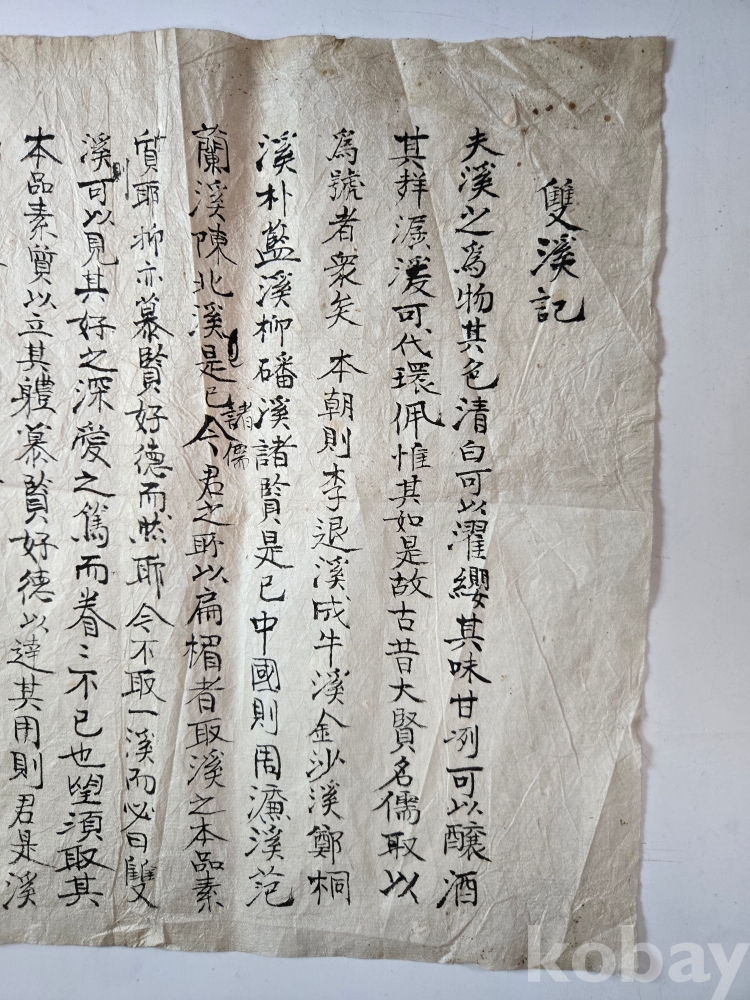 雙溪記
夫溪之爲物其色清白可以濯纓其味甘冽可以釀酒
其群潺湲可代環佩惟其如是故古昔大賢名儒取以
爲號者衆矣 本朝則李退溪成牛溪金沙溪鄭桐
溪朴藍溪柳磻溪諸賢是已中國則周濂溪范
蘭溪陳北溪諸儒是已今君之所以扁楣者取溪之本品素
質耶抑亦慕賢好德而然耶今不取一溪而必曰雙
溪則可以見其好之深愛之篤而眷〻不已也望須取其
本品素質以立其體慕賢好德以達其用則君是溪
kobay